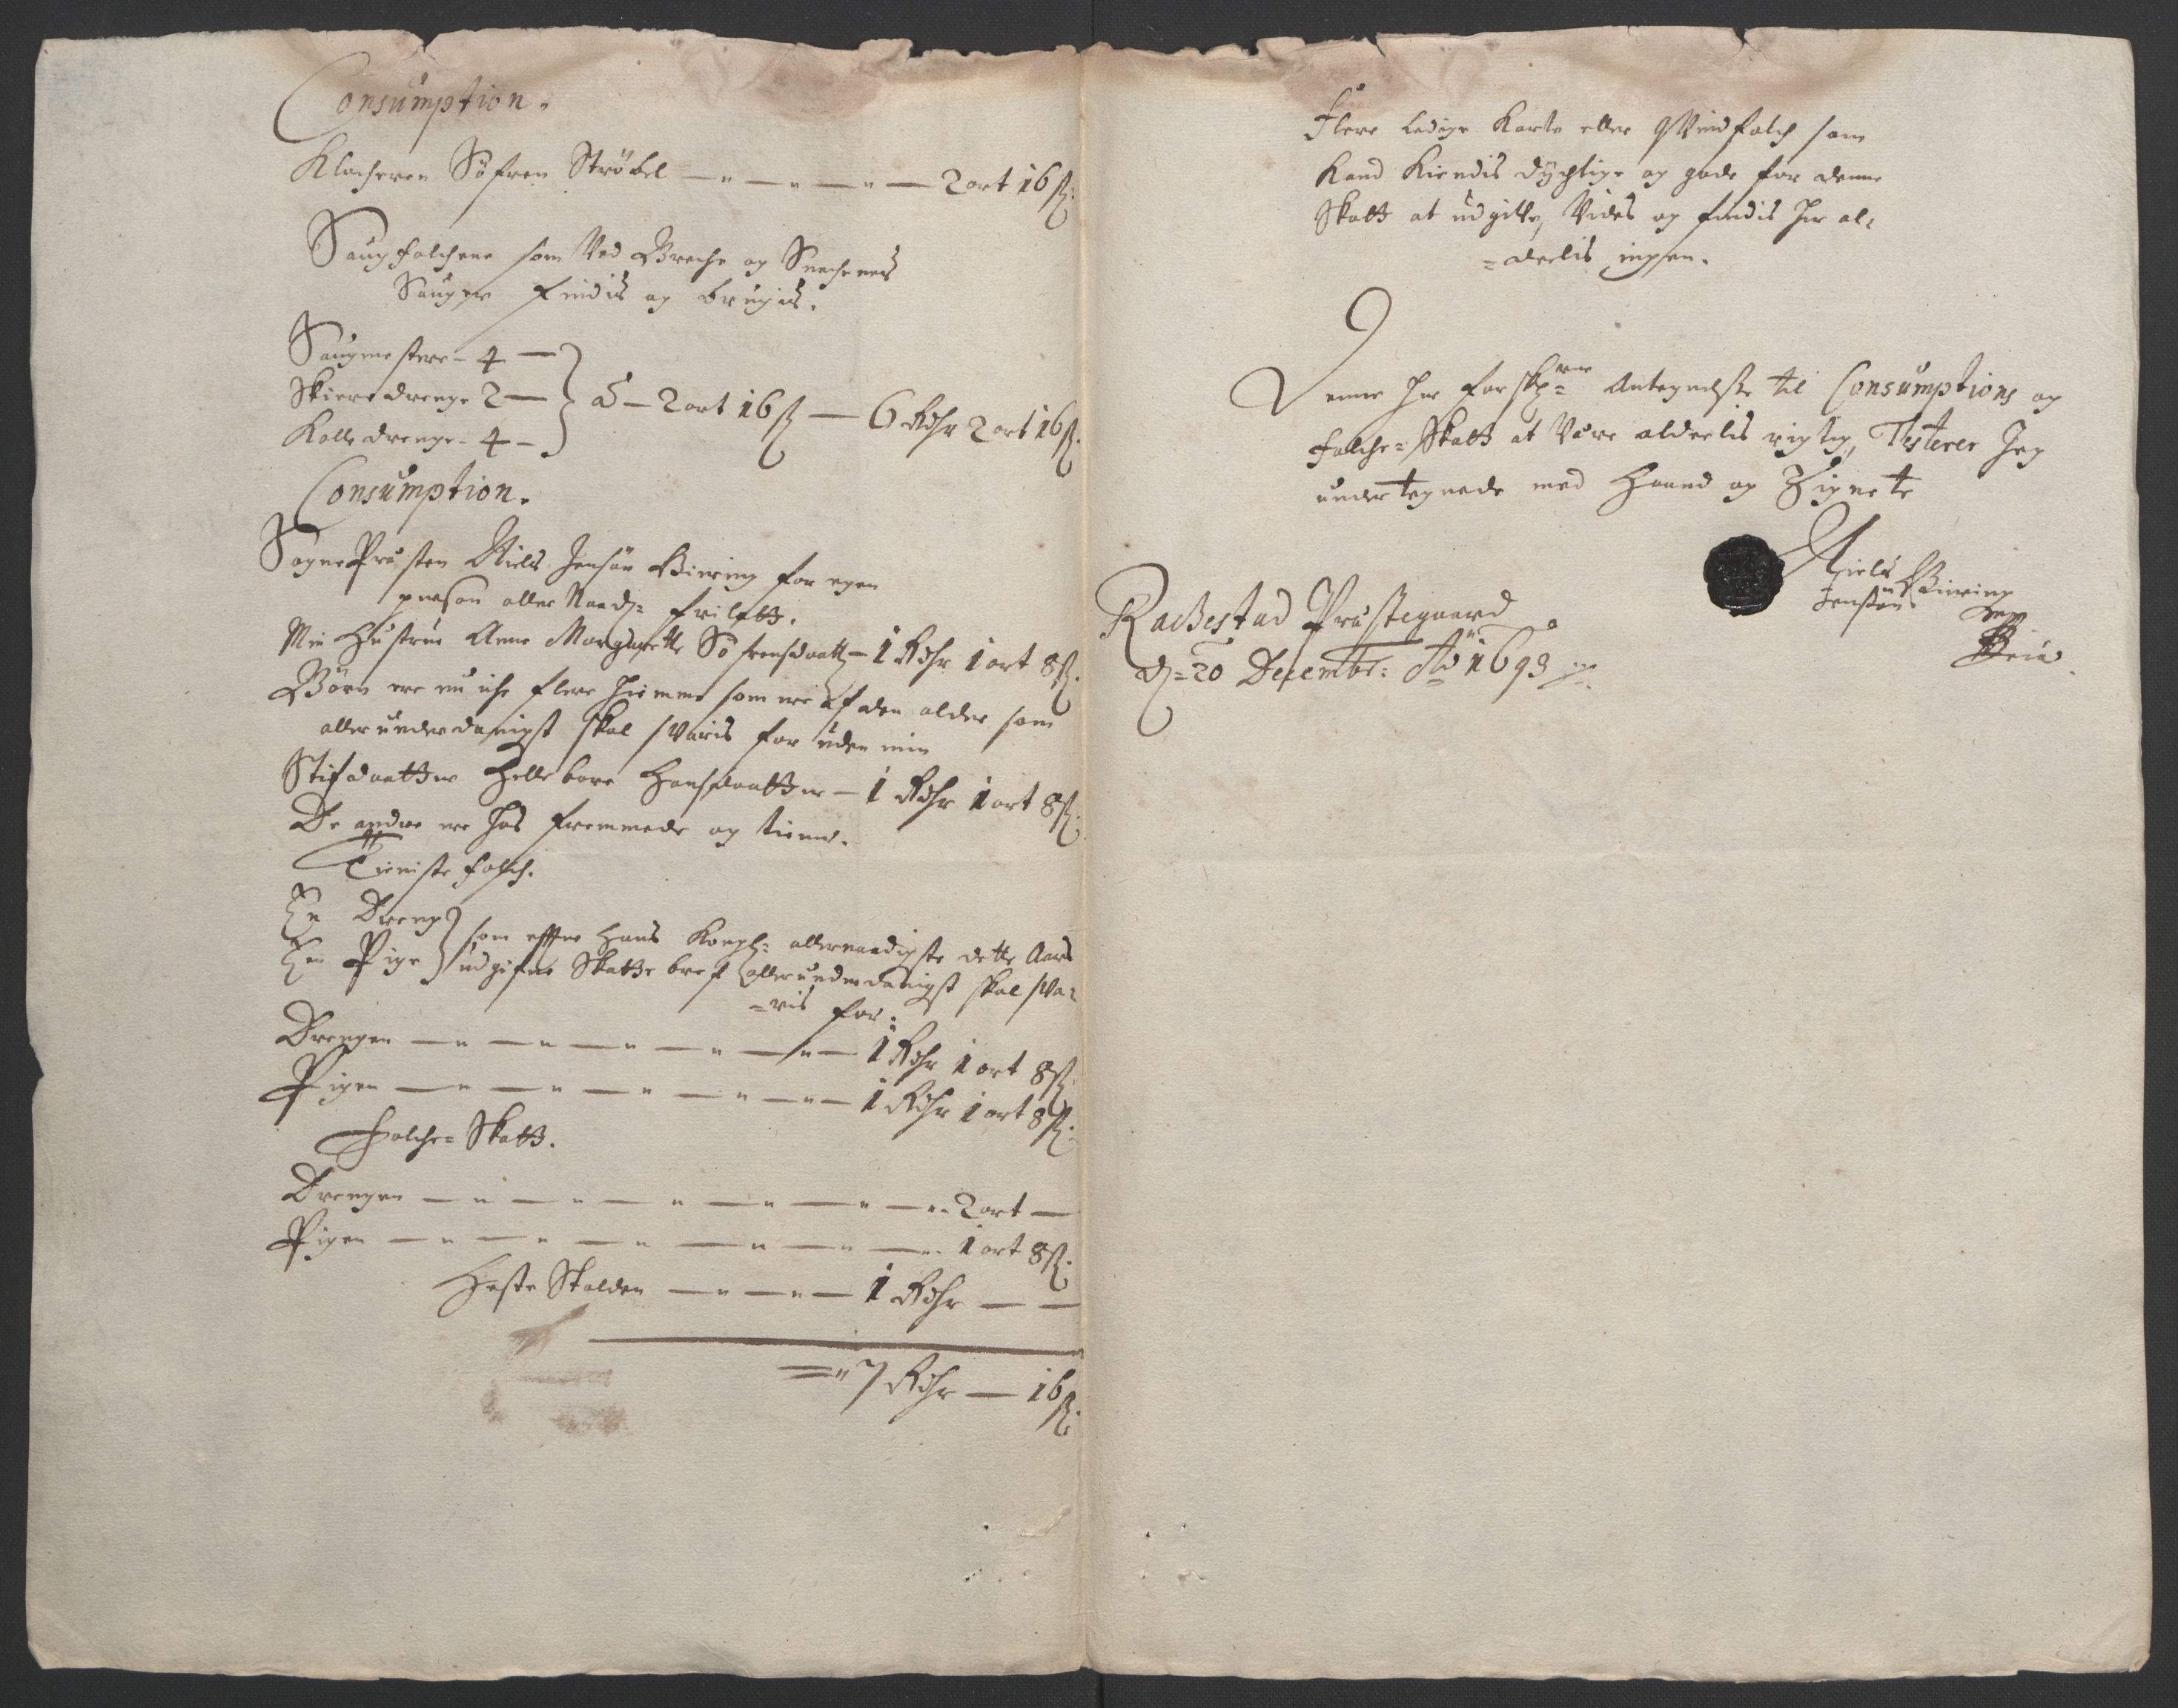 Consumption.
Klocheren Söfren Ströbel — " — " — " — 2 ort 16 ß:
Saugfolchene som Ved Breche og
Sauger findis og brugis.
Saugmestere - 4 —
Skieredrenge 2 — } à — 2 ort 16 ß — 6 Rdhr 2 ort 16 ß.
Kolledrenge - 4 —
Consumption.
SognePræsten Niels Jensön Biering for egen
person aller Naad: frilatt.
Min Hustrue Anne Margrette Söfrensdaatt: — 1 Rdhr 1 ort 8 ß.
Börn ere nu iche flere hiemme som ere af den alder som
allerunderdanigst skal svaris for uden min
Stifdaatter Hellebore Hansdaatter — 1 Rdhr 1 ort 8 ß.
De andre ere hos fremmede og tiener.
Tieniste folch.
En Dreng } som effter Hans Kongl: allernaadigste dette Aars
En Pige } udgifne Skatte bref allerunderdanigst skal sva=
=ris for.
Drengen — " — " — " — " — " — 1 Rdhr 1 ort 8 ß
Pigen — " — " — " — " — " — 1 Rdhr 1 ort 8 ß.
Folche=Skatt.
Drengen — " — " — " — " — " — " 2 ort —
Pigen — " — " — " — " — " — " 1 ort 8 ß.
Heste Skolden — " — " — 1 Rdhr — —
= " 7 Rdhr — 16 ß.
Flere ledige Karle eller qvindfolch som
Kand Kiendis dychtige og gode for denne
Skatt at udgifve, Vides og findis her al=
=deelis ingen.
Denne her for skr:ne Antegnelse til Consumptions og
folche=Skatt at Være aldeelis rigtig, Testerer Jeg
undertegnede med Haand og Zignete
Niels Jensson Biering
Rachestad Præstegaard
d: 20 Decembr: Ao 1693